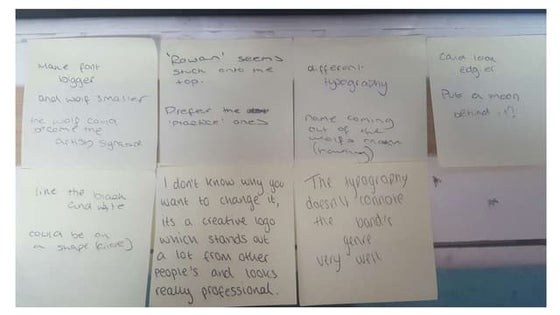 Make font
bigger
and wolf smaller
the wolf could
become the
artists signature
'Rowan' seems
stuck onto the
top.
Prefer the
'practice' ones
different
typography
name coming
out of the
wolf's
(howling)
Could look
edgier
Put a moon
behind it?
like the black
and white
could be on
a shape (circle)
I don't know why you
want to change it,
its a creative logo
which stands out
a lot from other
people's and looks
really professional.
The typography
doesn't connote
the band's
genre
very well